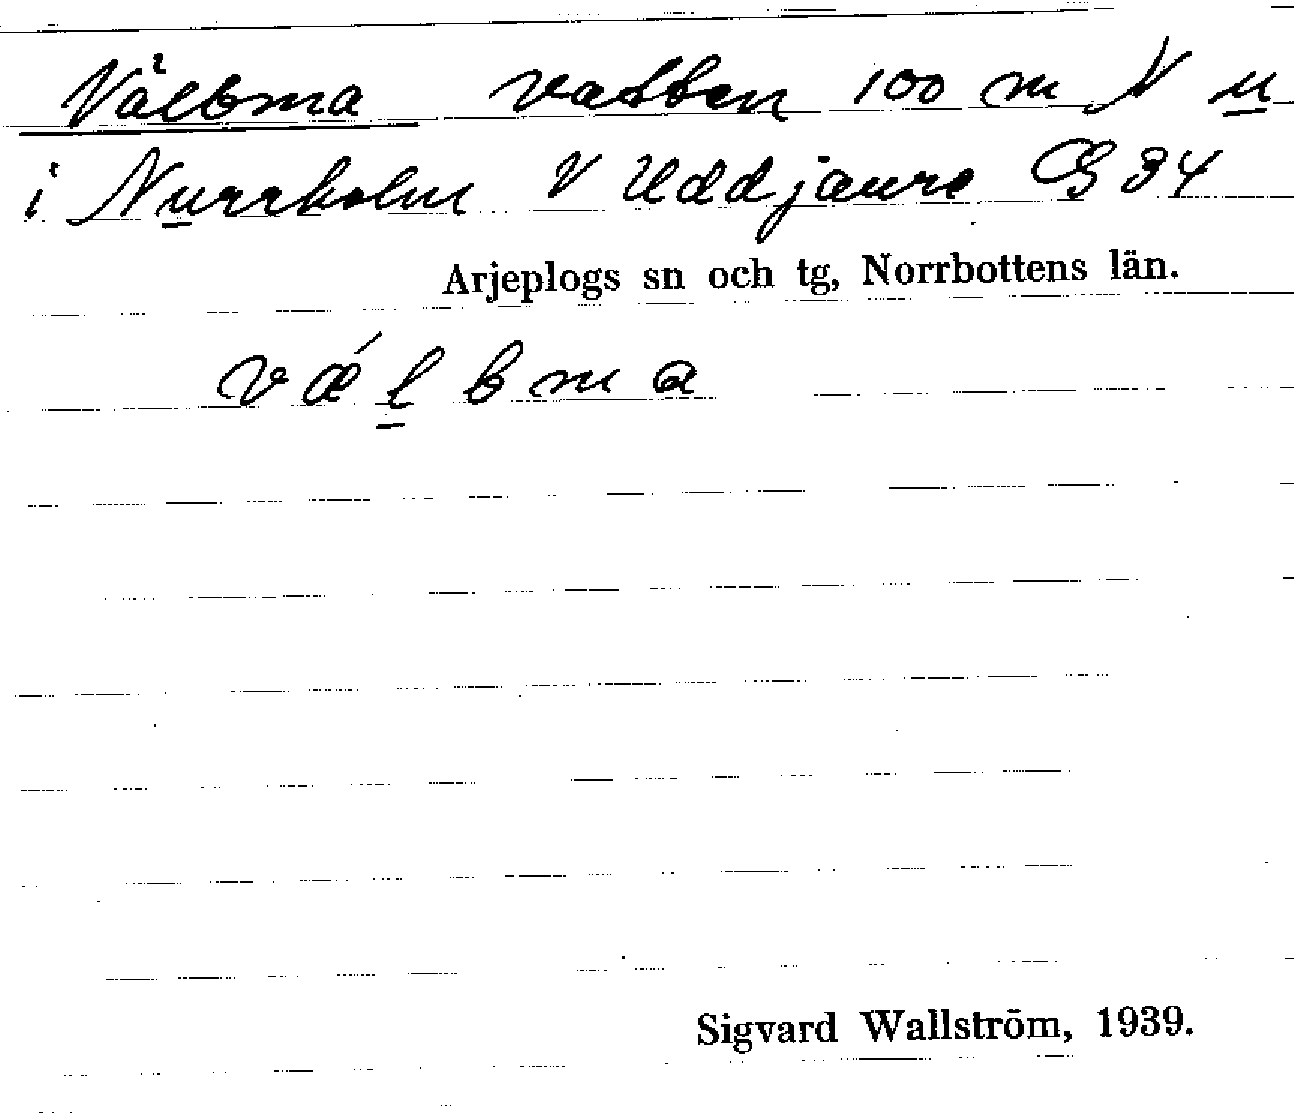 Välbma vatten 100 m N u
i Nurrholm V Uddjaure GS 34
Arjeplogs sn och tg, Norrbottens län.
vǽlbma
Sigvard Wallström, 1939.